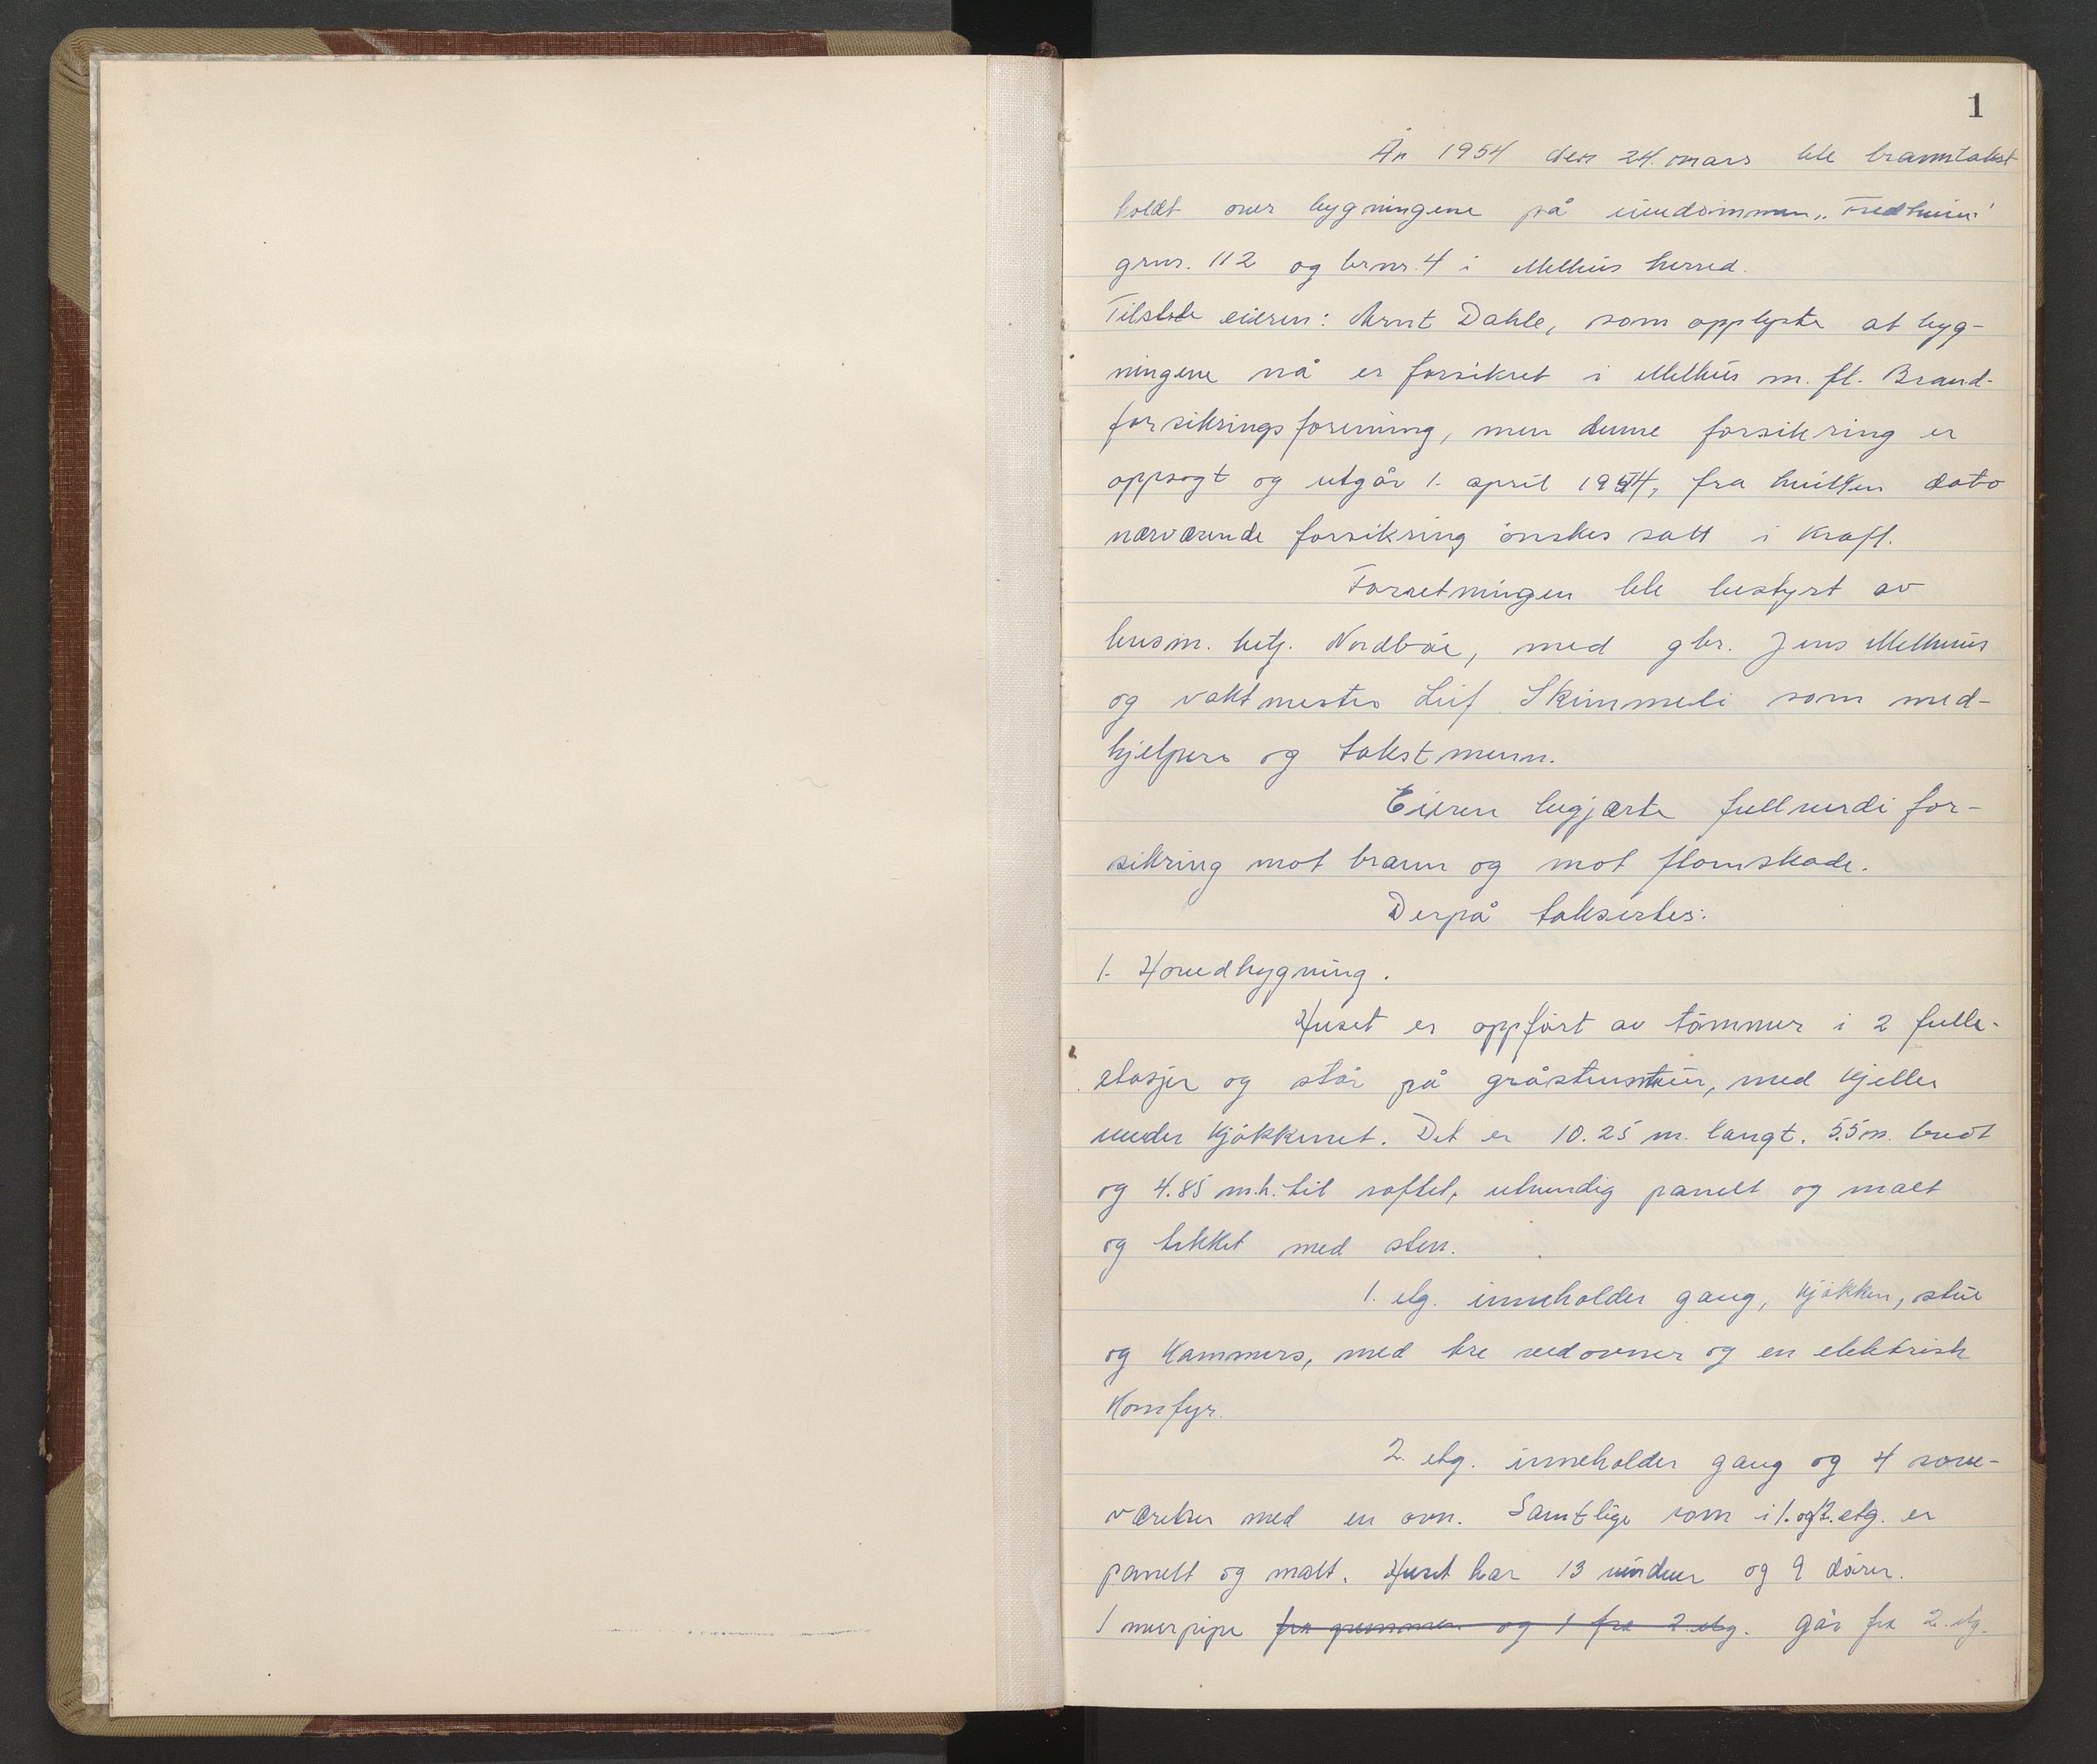 1
År 1954 den 24. mars ble branntakst
holdt over bygningene på eiendommen „Fredheim"
grnr. 112 og brnr. 4 i Melhus herred.
Tilstede eieren: Arnt Dahle, som opplyste at byg-
ningene nå er forsikret i Melhus m. fl. Brand-
forsikringsforening, men denne forsikring er
oppsagt og utgår 1. april 1954, fra hvilken dato
nærværende forsikring ønskes satt i kraft.
Forretningen ble bestyrt av
lensm. betj. Nordbøe, med gbr. Jens Melhuus
og vaktmester Leif Skimmeli som med-
hjelpere og takstmenn.
Eieren begjærte fullverdi for-
sikring mot brann og mot flomskade.
Derpå taksertes:
1. Hovedbygning.
Huset er oppført av tømmer i 2 fulle-
etasjer og står på gråstensmur, med kjeller
under kjøkkenet. Det er 10.25 m. langt. 5.5 m. bredt
og 4.85 m.h. til raftet, utvendig panelt og malt
og tekket med sten.
1. etg. inneholder gang, kjøkken, stue
og kammers, med tre vedovner og en elektrisk
komfyr.
2. etg. inneholder gang og 4 sove-
værelser med en ovn. Samtlige rom i 1. og 2. etg. er
panelt og malt. Huset har 13 vinduer og 9 dører.
1 murpipe fra grunnen og 1 fra 2. etg. går fra 2. etg.